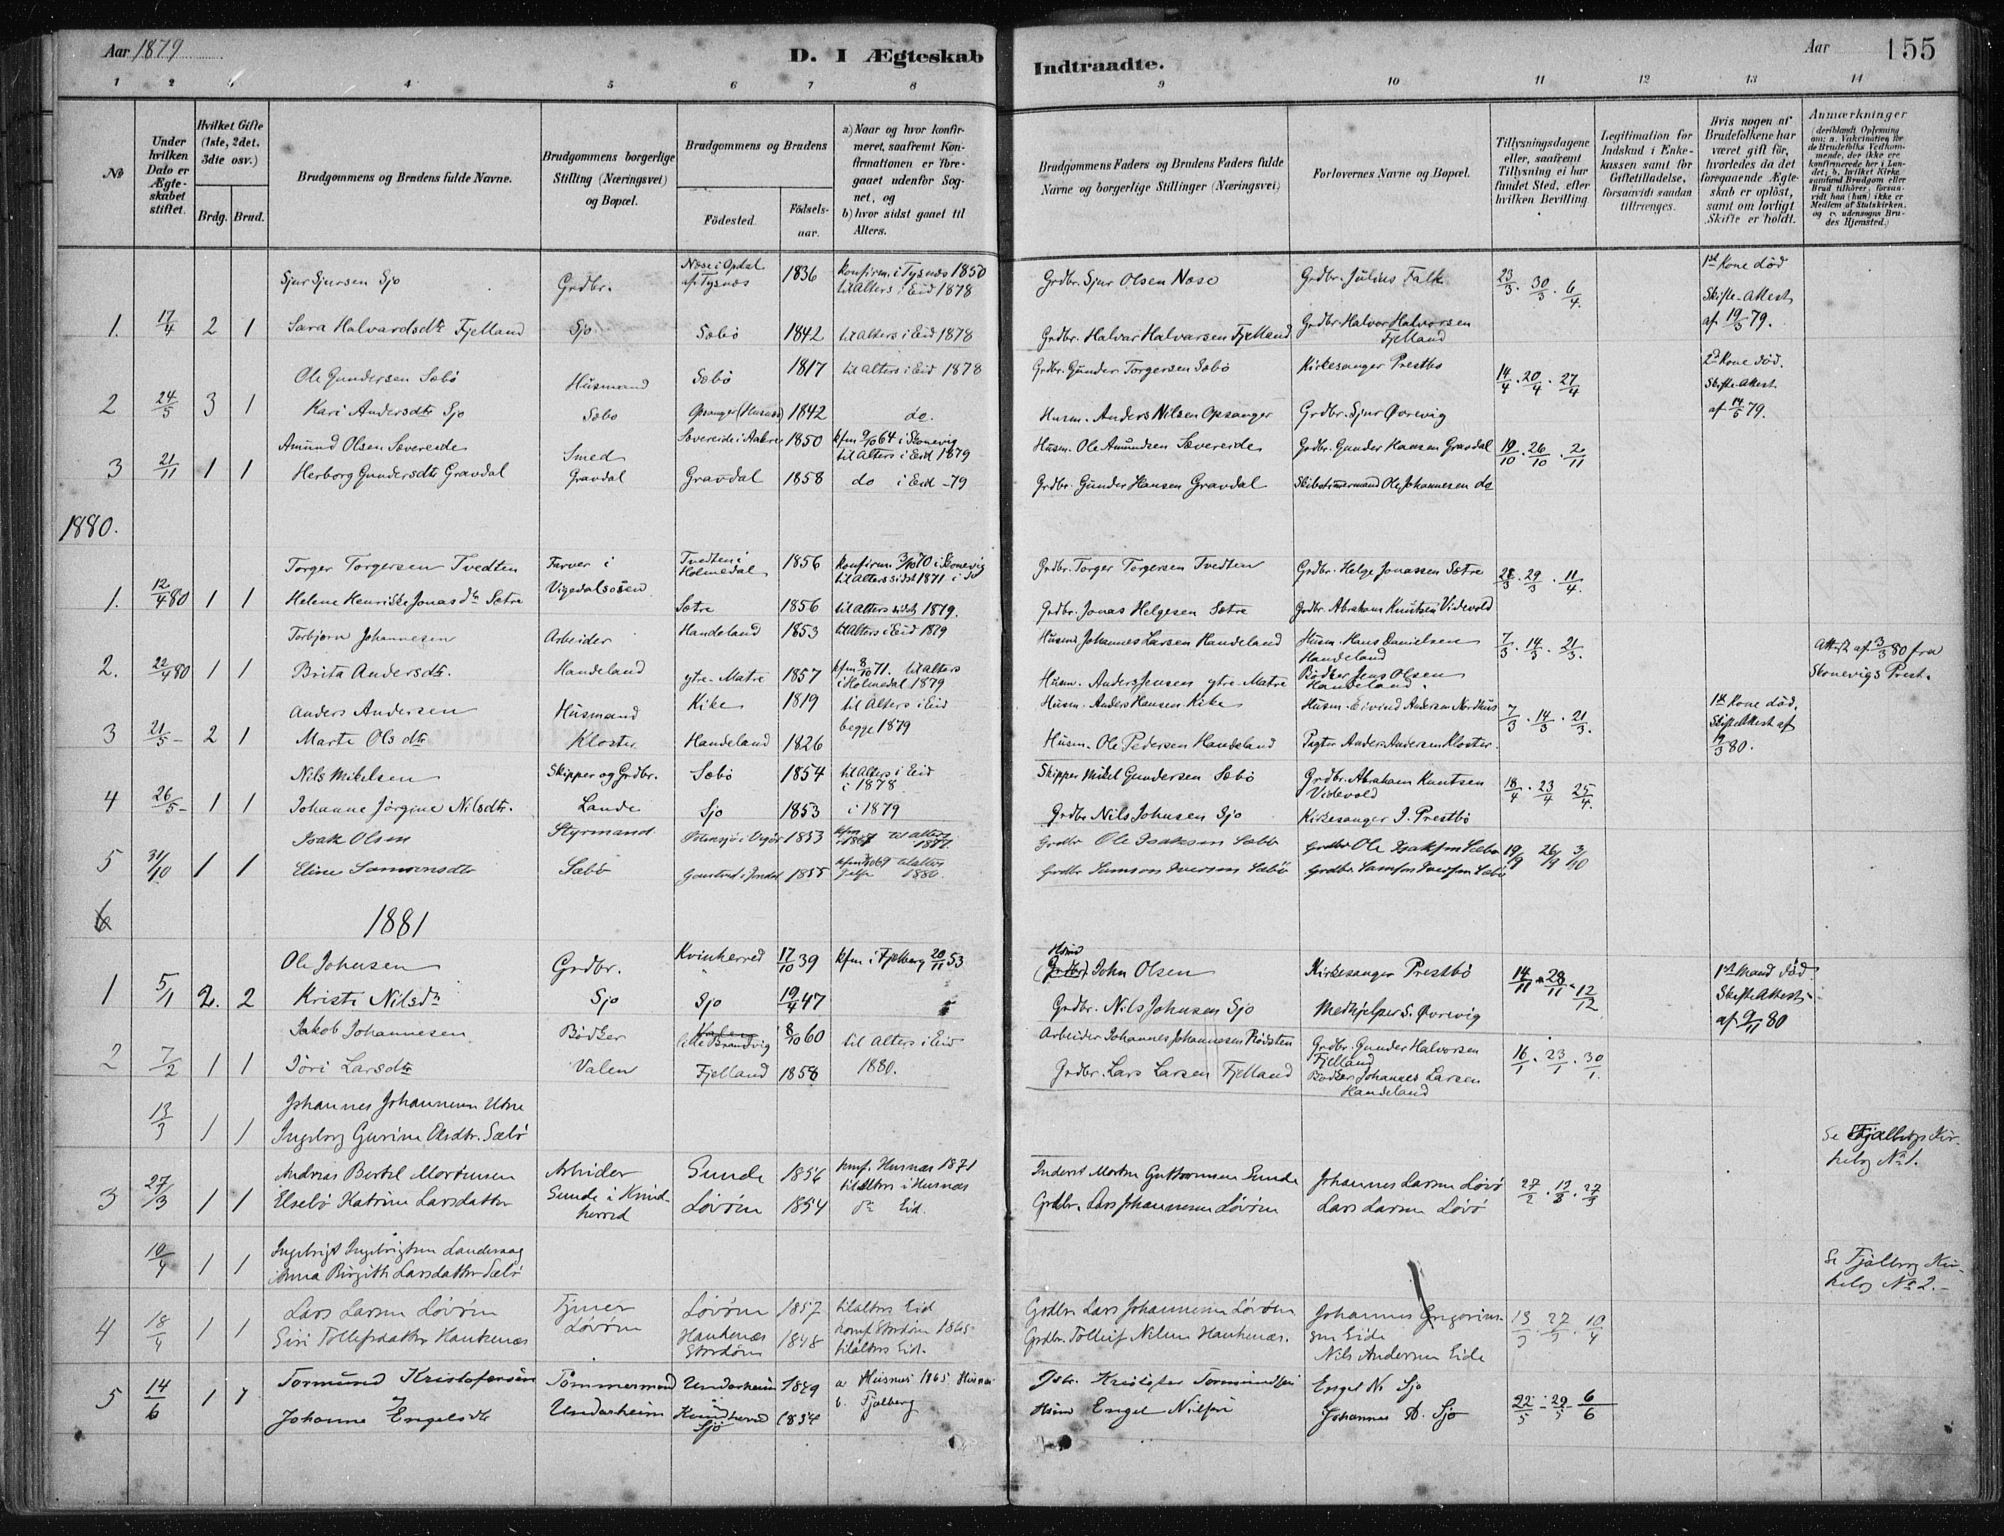 Aar 1879
D. I Ægteskab
Indtraadte.
Aar
155
1 2 3 4 5 6 7 8 9 10 11 12 13 14
No
Under hvilken Dato er Ægteskabet stiftet.
Hvilket Gifte (1ste, 2det. 3die osv.)
Brdg. Brud.
Brudgommens og Brudens fulde Navne.
Brudgommens borgerlige Stilling (Næringsvei) og Bopæl.
Brudgommens og Brudens
Födested. Födsels-aar.
a) Naar og hvor konfirmeret, saafremt Konfirmationen er foregaaet udenfor Sognet, og
b) hvor sidst gaaet til Alters.
Brudgommens Faders og Brudens Faders fulde Navne og borgerlige Stillinger (Næringsvei)
Forlovernes Navne og Bopæl.
Tillysningsdagene eller, saafremt Tillysning ei har fundet Sted, efter hvilken Bevilling
Legitimation for Indskud i Enkekassen samt for Giftetilladelse, forsaavidt saadan tiltrænges.
Hvis nogen af Brudefolkene har været gift för, hvorledes da det foregaaende Ægteskab er oplöst, samt om lovligt Skifte er holdt.
Anmærkninger
Sjur Sjursen Sjo Grdbr. Næse i Opdal af Tysnæs 1836 konfirm. i Tysnæs 1850 til Alters i Eid 1878 Grdbr. Sjur Olsen Næse Grdbr. Julius Falk 23/3 . 30/3 . 6/4. 1st Kone död
1. 17/4 2 1 Sara Halvardsdtr Fjelland Sjo Sæbö 1842 til Alters i Eid 1878 Grdbr. Halvar Halvarsen Fjelland Grdbr. Halvor Halvorsen Fjelland Skifte-Attest af 19/3 79.
Ole Gundersen Sæbö Husmand Sæbö 1817 til Alters i Eid 1878 Grdbr. Gunder Torgersen Sæbö Kirkesanger Prestbo 14/4 . 20/4 . 27/4 2d Kone död.
2 24/5 3 1 Kari Andersdtr Sjo Sæbo Opsanger (Husnæs) 1842 do. Husm. Anders Nilsen Opsanger Grdbr. Sjur Øvrevig Skifte Attest af 14/5 79.
Amund Olsen Sævereide Smed Sævereide i Aakre 1850 kfm 9/10 64 i Skonevig til Alters i Eid 1879 Husm. Ole Amundsen Sævereide Grdbr. Gunder Hansen Gravdal 19/10 . 26/10 . 2/11
3 21/11 1 1 Herborg Gundersdtr Gravdal Gravdal Gravdal 1858 do i Eid -79 Grdbr. Gunder Hansen Gravdal Skibstömermand Ole Johannesen do
1880.
Torger Torgersen Tvedten Farver i Tvedten i Holmedal 1856 konfirm 3/10 70 i Skonevig til Alters sidst 1871 i Grdbr. Torger Torgersen Tvedten Grdbr. Helge Jonassen Sætre 28/3 . 29/3 . 11/4.
1. 12/4 80 1 1 Helene Henrikke Jonasdtr Sætre Vigedalsosen Sætre 1856 til Alters sidst 1879. Grdbr. Jonas Helgesen Sætre Grdbr. Abraham Knutsen Videvold
Torbjorn Johannesen Arbeider Handeland 1853 til Alters i Eid 1879 Husm. Johannes Larsen Handeland Husm. Hans Danielsen Handeland 7/3 . 14/3 . 21/3.
2. 22/4 80 1 1 Brita Andersdtr. Handeland ytre Matre 1857 kfm 8/10 71. til Alters i Holmedal 1879 Husm. Anders Jensen ytre Matre Bödker Jens Olsen Handeland. Attest af 3/3 80 fra Skonevigs Prest.
Anders Andersen Husmand Kike 1819 til Alters i Eid Husm. Anders Hansen Kike Husm. Eivind Andersen Nordhus 7/3 . 14/3 . 21/3. 1st Kone död.
3 21/5 - 2 1 Marte Olsdtr Kloster Handeland 1826 begge 1879 Husm. Ole Pedersen Handeland Pagter Anders Andersen Kloster. Skifte Attest af 19/3 80.
Nils Mikelsen Skipper og Grdbr. Sæbö 1854 til Alters i Eid i 1878. Skipper Mikel Gundersen Sæbö Grdbr. Abraham Knutsen Videvold 18/4 . 23/4 25/4.
4 26/5 - 1 1 Johanne Jörgine Nilsdtr. Lande Sjo 1853 i 1879 Grdbr. Nils Johnsen Sjo Kirkesanger I. Prestbö
Isak Olsen Styrmand 1853 til alters 1877. Grdbr Ole Isaksen Sæbö Grdbr Ole Isaksen Sæbø 19/9 26/9 3/10
5 31/10 1 1 Eline Samsonsdtr Sæbö 1855 til alters 1880. Grdbr Samson Iversen Sæbö Grdbr Samson Iversen Sæbö
6 1881
Ole Johnsen Grdbr. Kvinherred 17/10 39 kfm i Fjelberg 20/11 53 Husm (Grdbr). John Olsen Kirkesanger Prestbö 14/11 . 28/11 . 12/12 1st Mand död
1 5/1 2. 2 Kristi Nilsdtr Sjo Sjo 19/4 47 Grdbr. Nils Johnsen Sjo Medhjelper S. Øvrevig Skifte Attest af 9/11 80
Jakob Johannesen Bödker Valen Brandvig 8/10 60 til Alters i Eid Arbeider Johannes Johannesen Rödsten Grdbr. Gunder Halvorsen Fjelland 16/1 . 23/1 . 30/1.
2 7/2 1 1 Jöri Larsdtr Valen Fjelland 1858 1880. Grdbr. Lars Larsen Fjelland Bödker Johannes Larsen Handeland
Johannes Johannesen Utne
13/3 1 1 Ingeborg Gurine Olsdtr. Sæbö Se Fjælbergs Kirkebog No 1.
Andreas Bertel Mortensen Arbeider Sunde 1856 konf. Husnæs 1871 til alters i Husnæs Inderst Morten Guttormsen Sunde Johannes Larsen Lövö 27/2 . 13/3 . 27/3
3 27/3 1 1 Elsebö Katrine Larsdatter Sunde i Kvindherred Lövöen 1854 Do Eid. Grdbr. Lars Johannesen Lövöen Lars Larsen Lövö
Ingebrigt Ingebrigtsen Landersaag
10/4 1 1 Anna Birgith Larsdatter Sæbö Se Fjelberg Kirkebog No 2.
Lars Larsen Lövöen Lövöen 1857 til alters Eid Grdbr Lars Johannesen Lövöen Johannes Gregoriussen Eide 13/3 . 27/3 . 10/4
4 18/4 1 1 Siri Tollefsdatter Haukenæs Lövöen Haukenæs Stordöen 1848 konf Stordöen 1865 til alters Eid. Grdbr. Tollef Nilsen Haukenæs. Nils Andersen Eide
Tormund Kristofersön Tömmermand Undarheim i Kvindherred 1849 a Husnæs 1865 Husnæs Gbr. Kristofer Tormundsen Engel N. Sjo
5 14/6 1 1 Johanne Engelsdtr Undarheim Sjö 1854 b. Fjelberg Husm Engel Nilsen Johannes A. Sjo 22/5 - 29/5 - 6/6